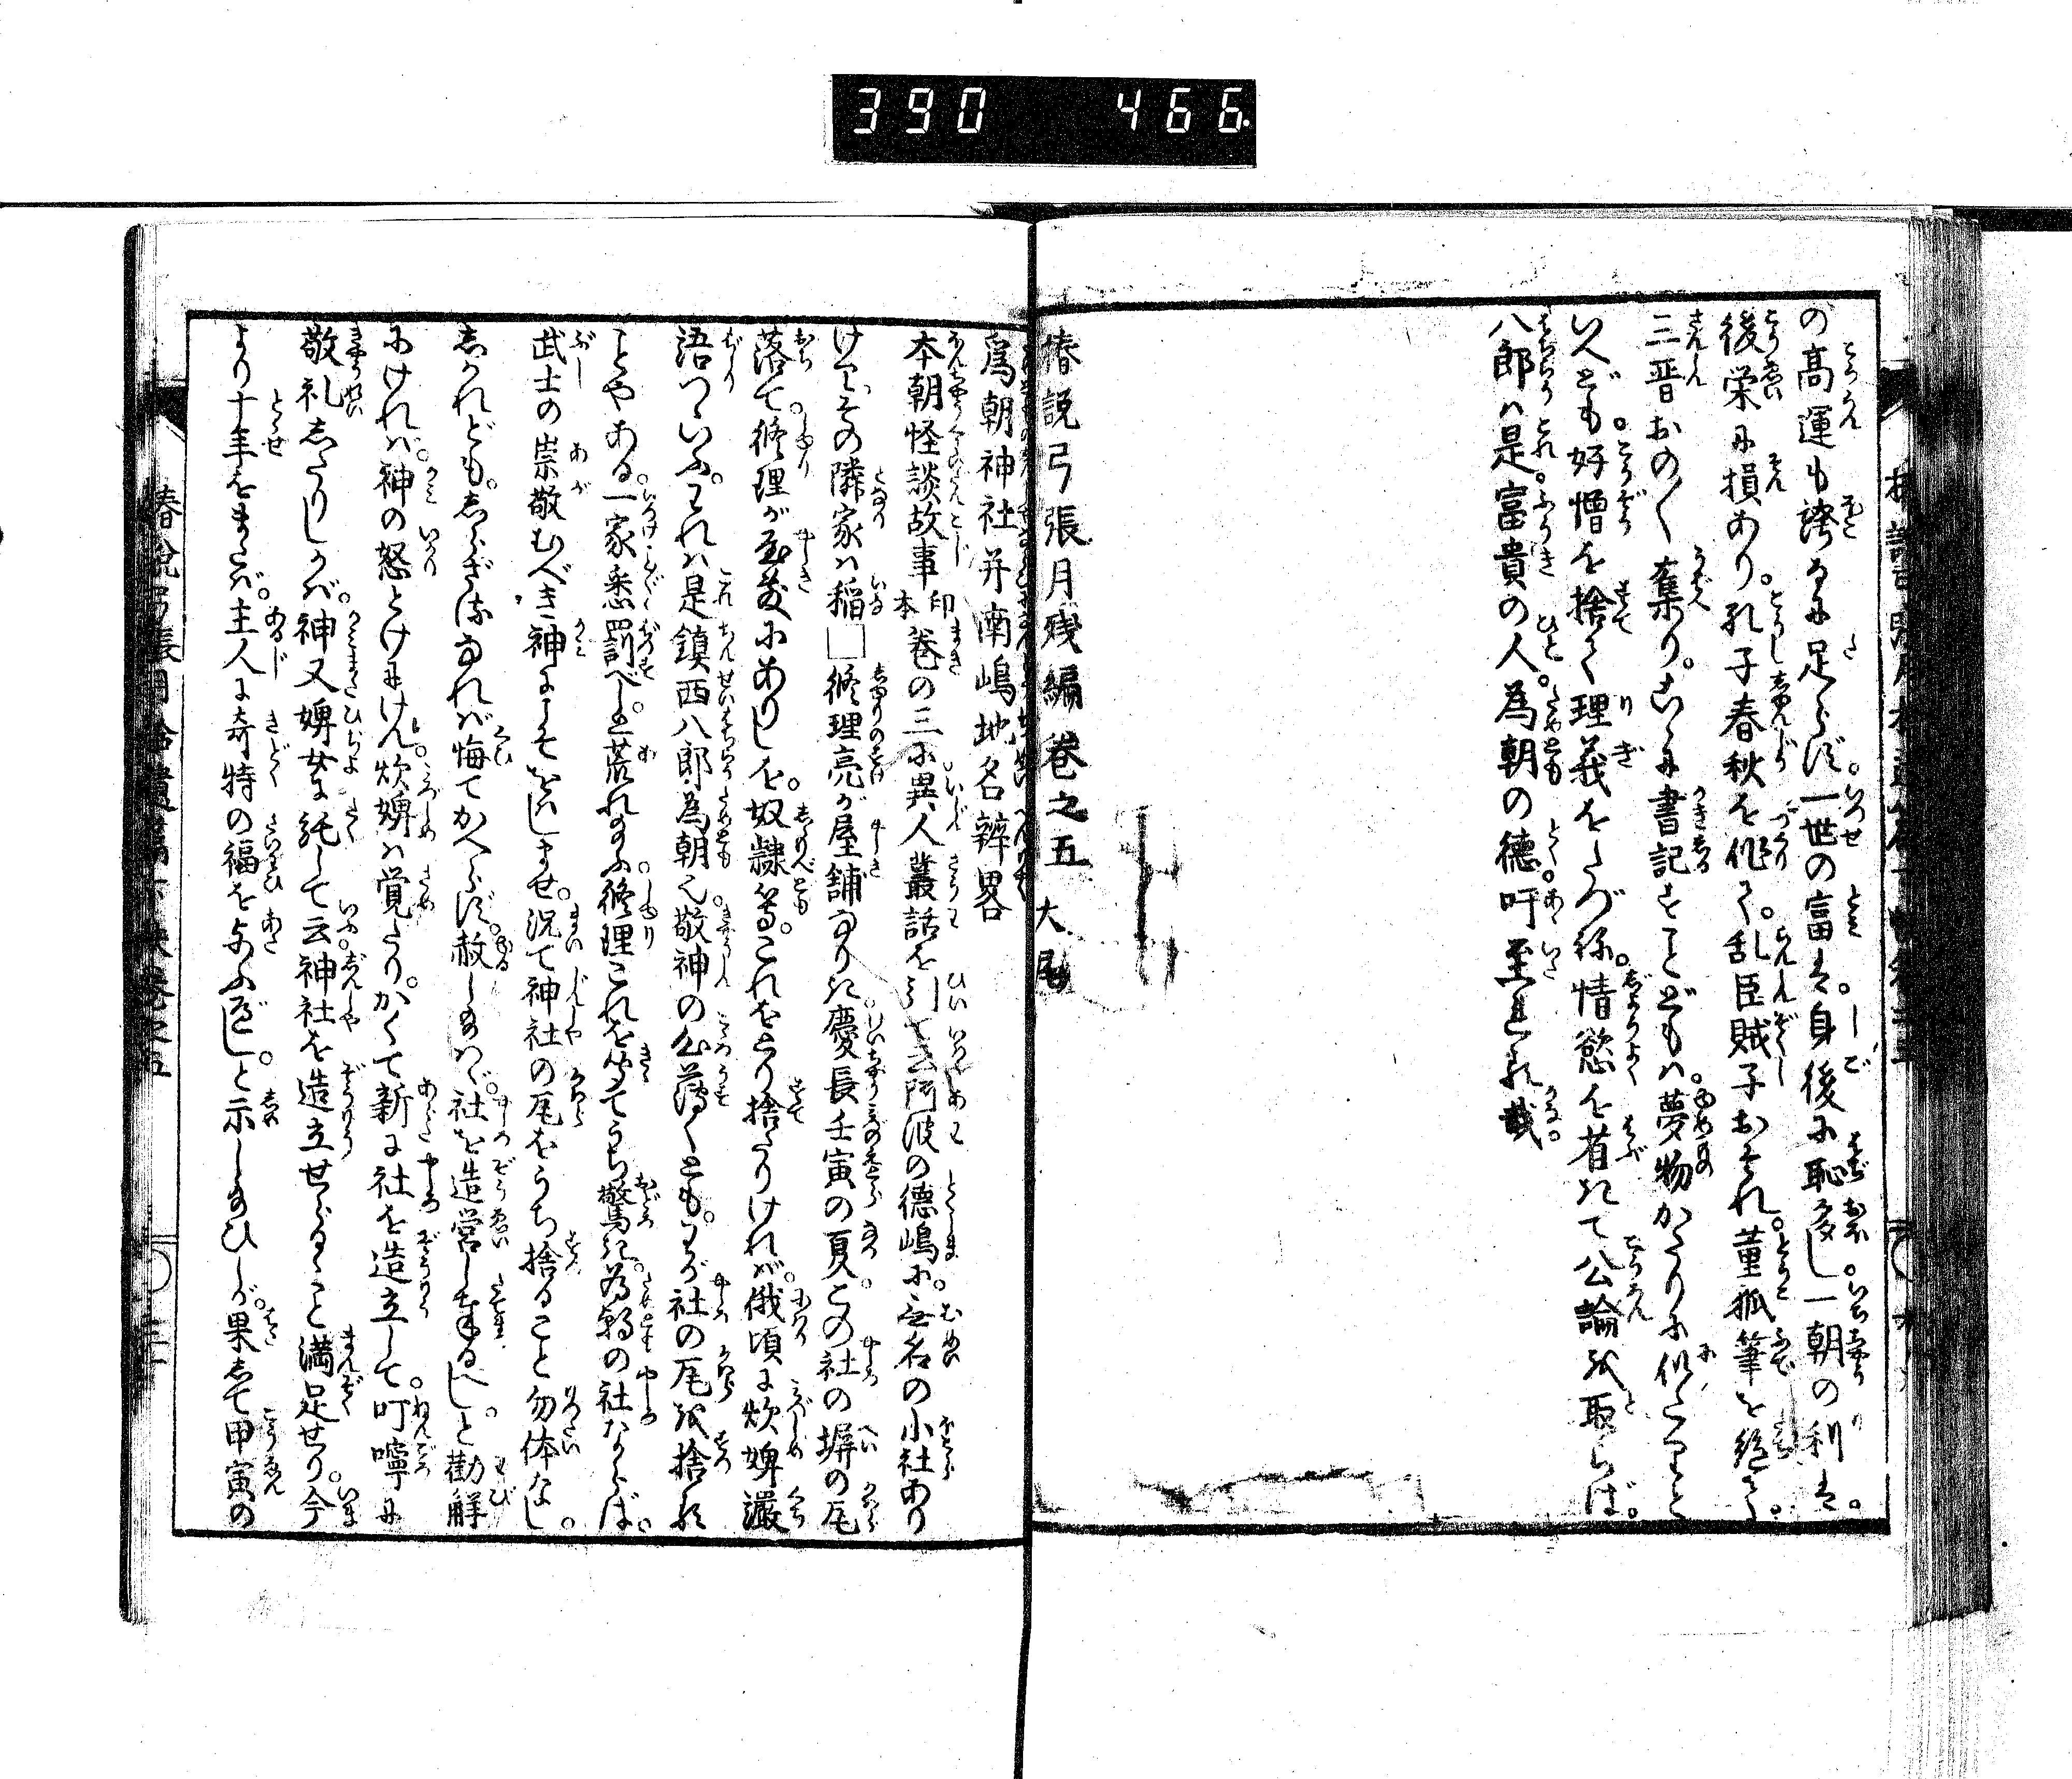 390 466
の高運も誇るに足らず。一世の富は。身後に恥多し。一朝の利は。
後栄に損あり。孔子春秋を作て。乱臣賊子おそれ。董狐筆を絶て。
三晋おの〱奪り。こゝに書記すことどもは。夢物がたりに似たりと
いへども。好憎を捨て理義をたづね。情慾を省きて公論を取らば。
八郎は是。富貴の人。為朝の徳。吁至れる哉。
椿説弓張月残編巻之五大尾
為朝神社并南嶋地名辨畧
本朝怪談故事印本巻の三に。異人叢話を引て云。阿波の徳嶋に。無名の小社あり
けり。その隣家は稲□修理亮が屋舗なりき。慶長壬寅の夏。この社の塀の瓦
落て。修理が屋敷にありしを。奴隷等。これをとり捨たりければ。俄頃に炊婢讝
語つゝいふ。われは是鎮西八郎為朝也。敬神の心薄くとも。わが社の瓦を捨る
ことやある。一家悉罰べしと荒れ給ふ。修理これを聞てうち驚き。為朝の社ならば。
武士の崇敬むべき神にこそをはしませ。況て神社の瓦をうち捨ること勿体なし。
しかれども。しらざる事なれば悔てかへらず。赦し給はゞ。社を造営し奉るべし。と勸解
にければ。神の怒とけにけん。炊婢は覚たり。かくて新に社を造立して。叮嚀に
敬礼したりしかば。神又婢女に託して云。神社を造立せらるゝこと満足せり。今
より十年をまたば。主人に奇特の福を与ふべし。と示し給ひしが。果して甲寅の
椿説弓張月拾遺巻之五